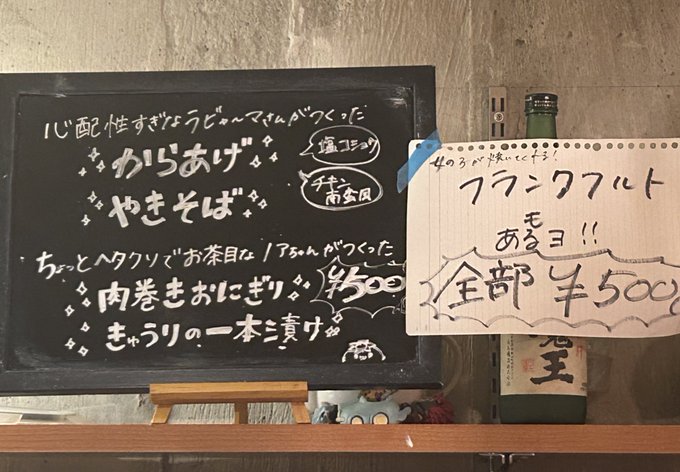 心配性すぎなラビャーマさんがつくった
からあげ
塩コショウ
やきそば
チキン
南蛮風
ちょっとヘタクソでお茶目なノアちゃんがつくった
肉巻きおにぎり
¥500
きゅうりの一本漬け
女の子が焼いてくれる!
フランクフルト
もあるヨ!!
全部 ¥500
王